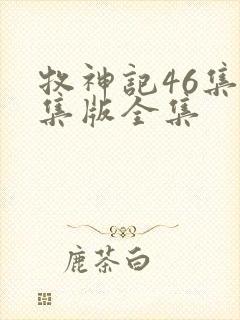 牧神記46集
集版全集
鹿茶白